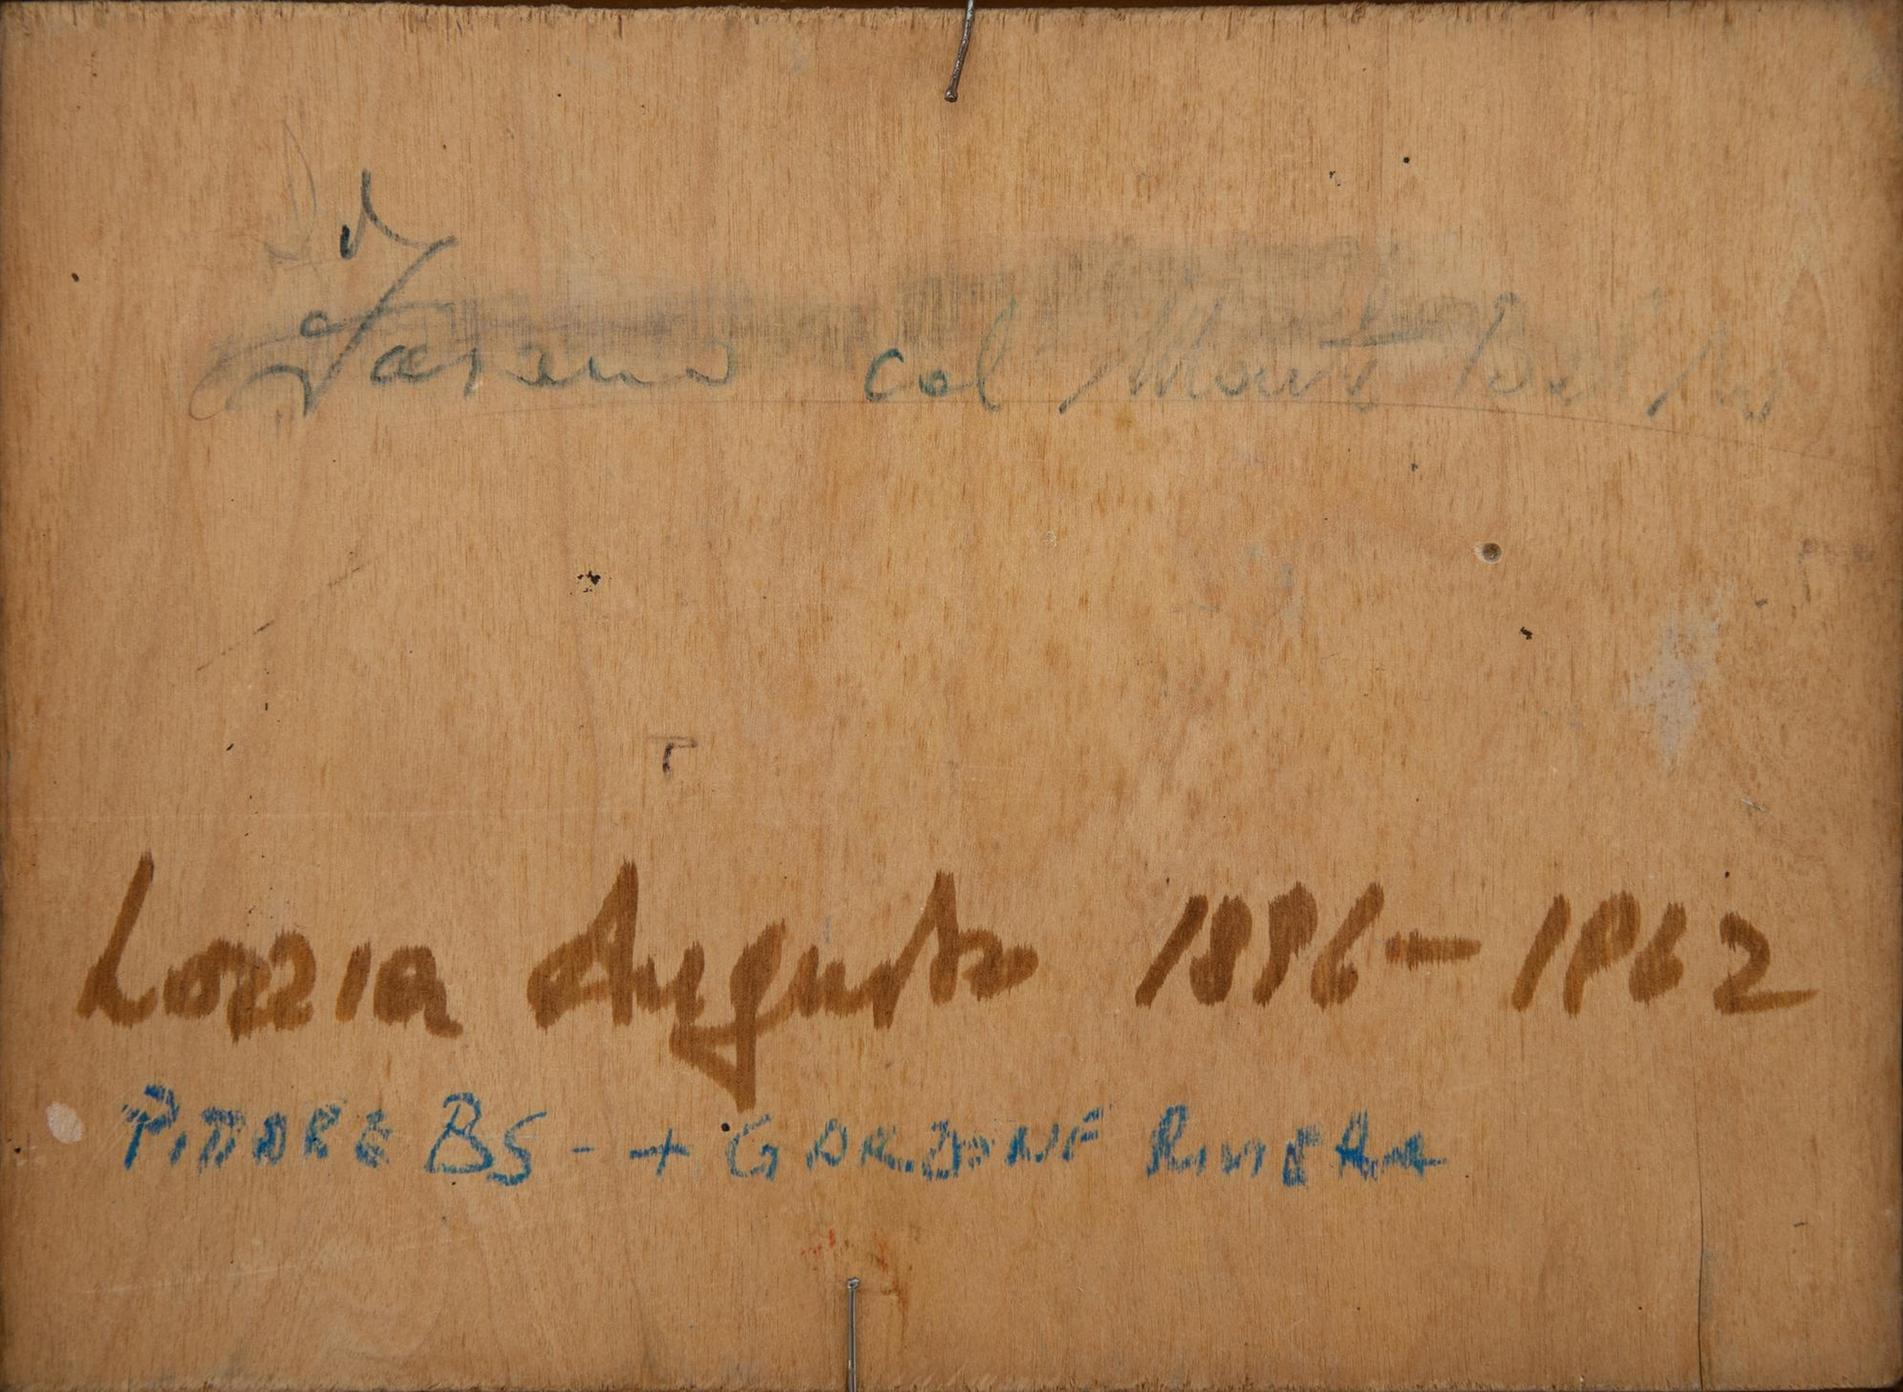 Fasano col Monte
Lozzia Augusto 1896-1962
PITTORE BS - + GARDONE RIVIERA